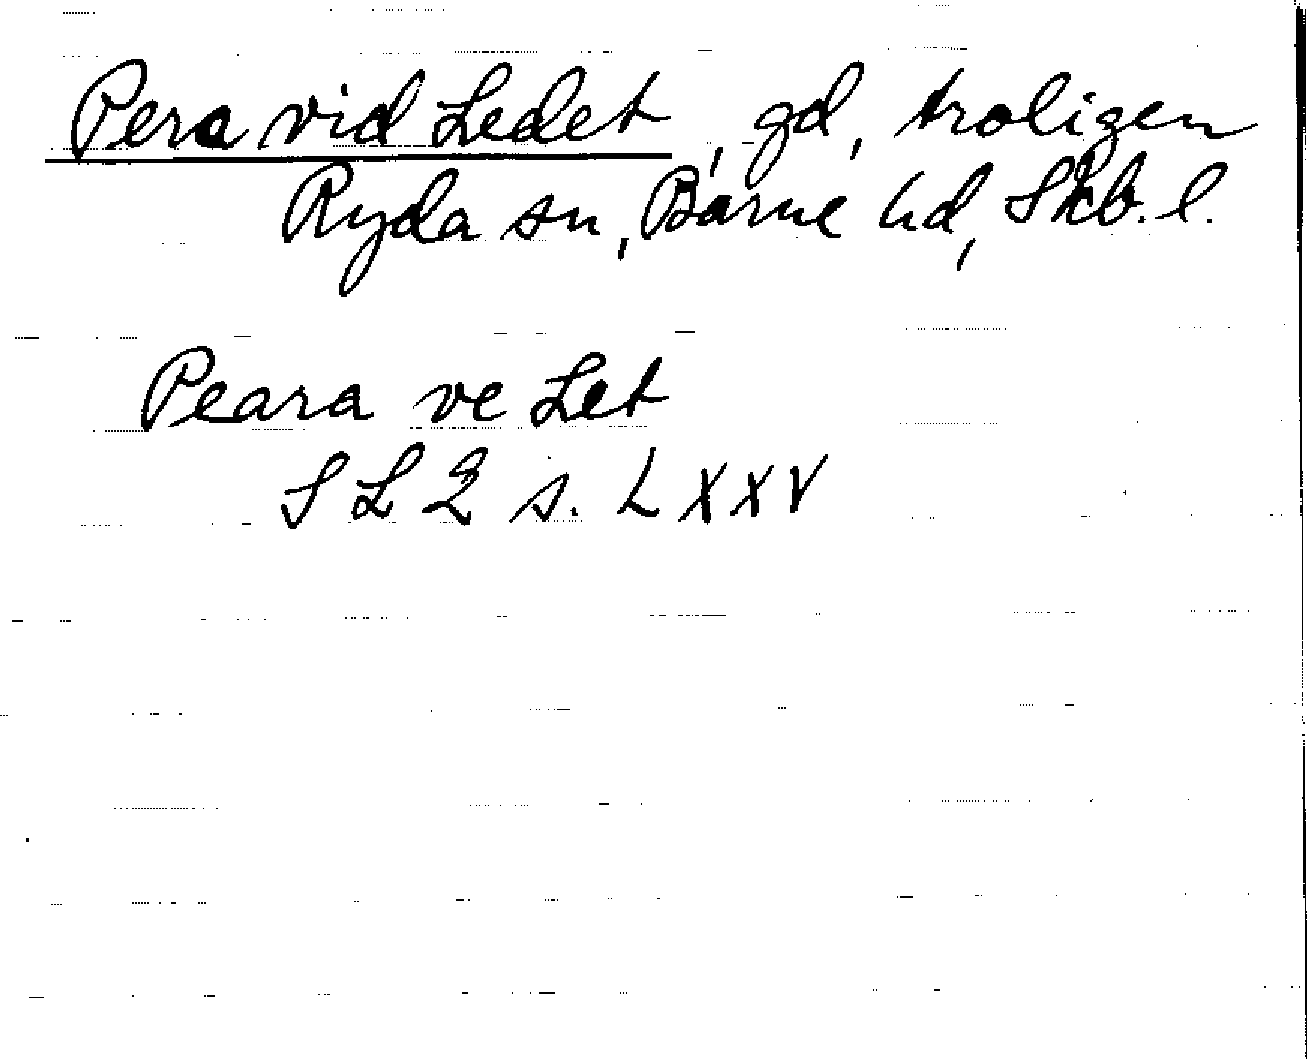 Pera vid Ledet, gd, troligen
Ryda sn, Barne hd, Skb. l.
Peara ve Let
SL 2 s. LXXV